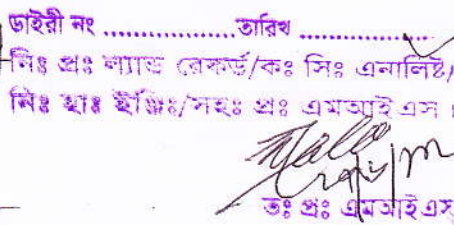 ডাইরী নং ..................তারিখ ..................
নিঃ প্রঃ ল্যান্ড রেকর্ড/কঃ সিঃ এনালিষ্ট/
নিঃ হাঃ ইঞ্জিঃ/সহঃ প্রঃ এমআইএস ।
তঃ প্রঃ এমআইএস